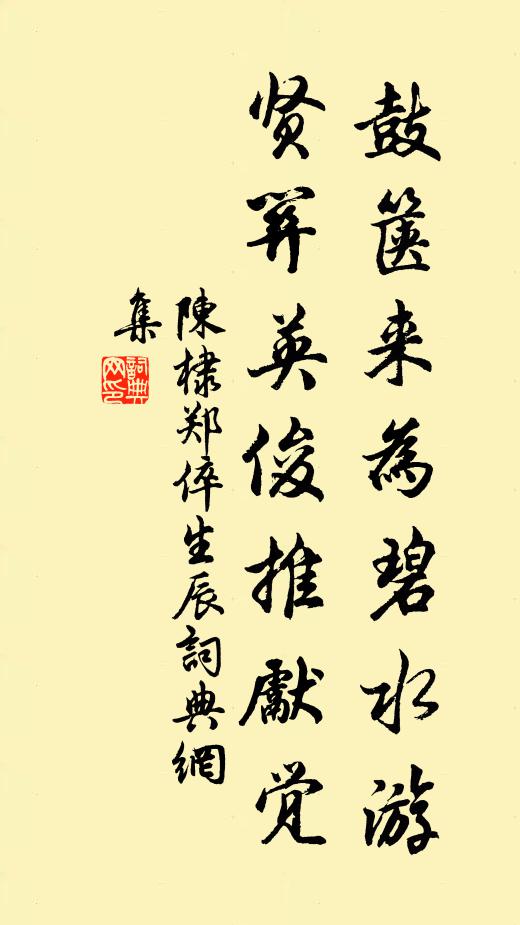 鼓箧来為碧水游
贤羿英俊推獻觉
陳棣郑倅生辰詞典網
集
詞典网印